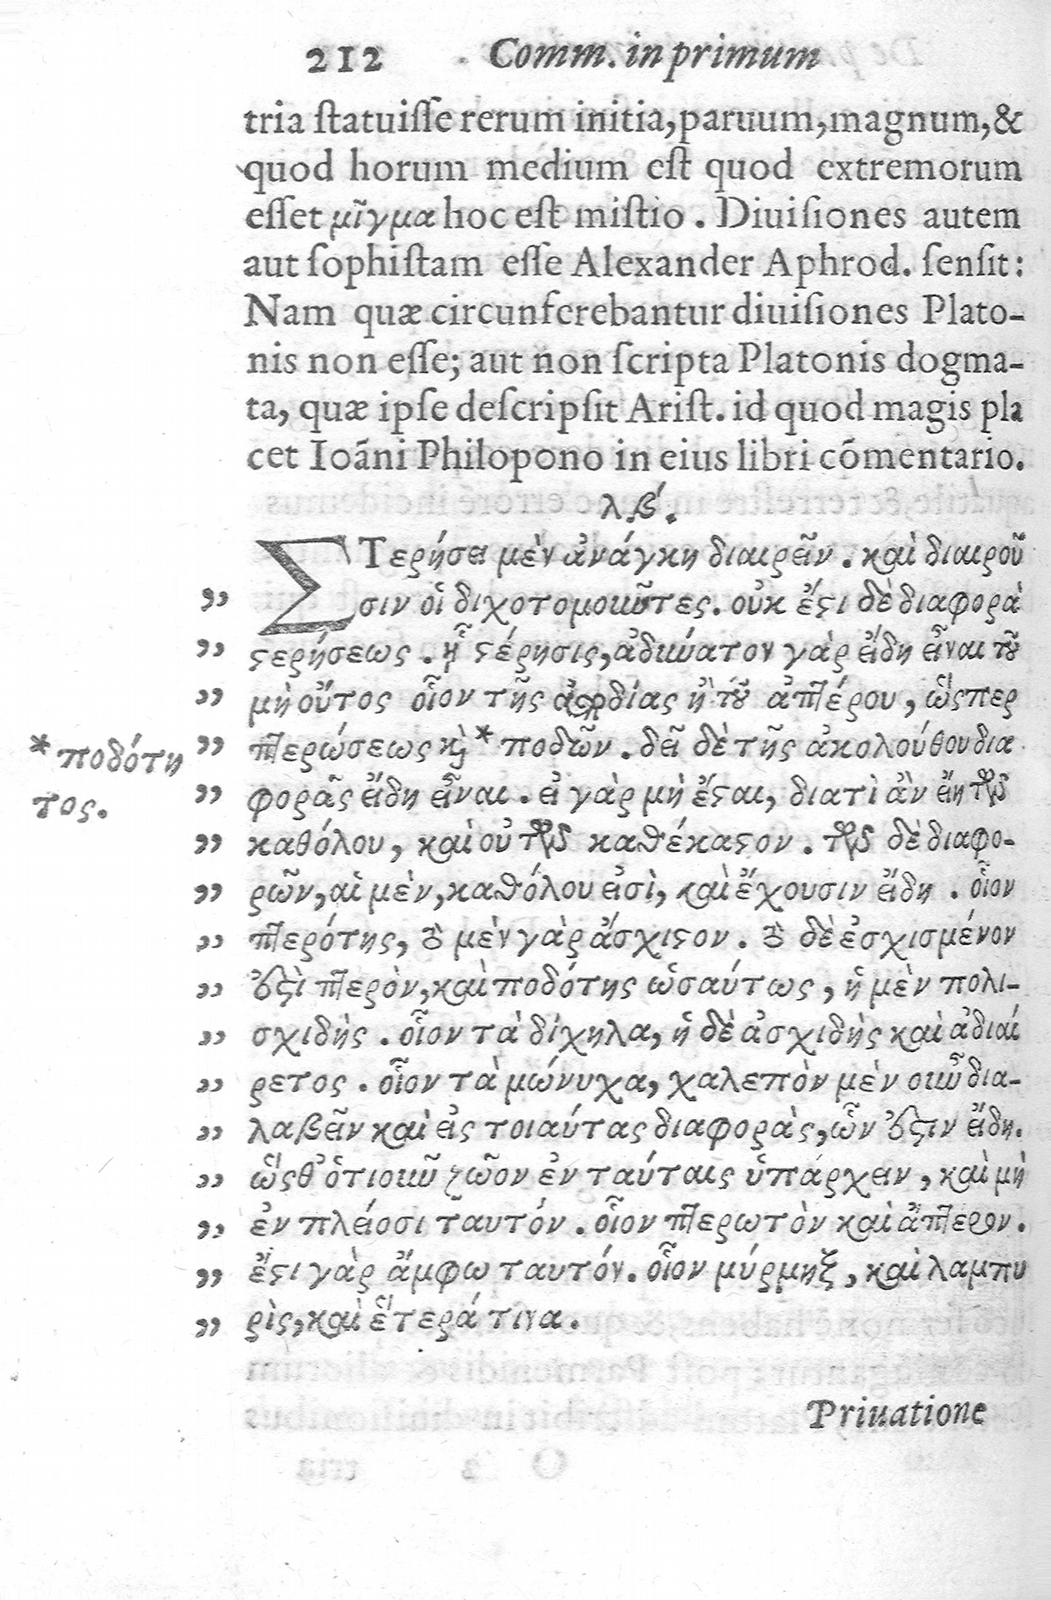 212 Comm. in primum
tria ſtatuiſſe rerum initia, paruum, magnum, &
quod horum medium eſt quod extremorum
eſſet μῖγμα hoc eſt miſtio. Diuiſiones autem
aut ſophiſtam eſſe Alexander Aphrod. ſenſit:
Nam quæ circunferebantur diuiſiones Plato-
nis non eſſe; aut non ſcripta Platonis dogma-
ta, quæ ipſe deſcripſit Ariſt. id quod magis pla
cet Ioãni Philopono in eius libri cõmentario.
λβ΄.
ΣΤερήσει μὲν ἀνάγκη διαιρεῖν. καὶ διαιροῦ
„ σιν οἱ διχοτομοῦντες. οὐκ ἔϛι δὲ διαφορὰ
„ ϛερήσεως. ᾗ ϛέρησις, ἀδύνατον γὰρ εἴδη εἶναι τοῦ
„ μὴ οὔτος οἷον τῆς ἀποδίας ἢ τοῦ ἀπτέρου, ὥςπερ
„ πτερώσεως κὴ * ποδῶν. δεῖ δὲ τῆς ἀκολούθου δια
* ποδότη
τος.
„ φορᾶς εἴδη εἶναι. εἰ γὰρ μὴ ἔϛαι, διατὶ ἂν εἴη τῶν
„ καθόλου, καὶ οὐ τῶν καθέκαϛον. τῶν δὲ διαφο-
„ ρῶν, αἱ μὲν, καθόλου εἰσὶ, καὶ ἔχουσιν εἴδη. οἷον
„ πτερότης, τὸ μὲν γὰρ ἄσχιϛον. τὸ δὲ ἐσχισμένον
„ ἐϛὶ πτερὸν, καὶ ποδότης ὡσαύτως, ἡ μὲν πολι-
„ σχιδὴς. οἷον τὰ δίχηλα, ἡ δὲ ἀσχιδὴς καὶ ἀδιαί
„ ρετος. οἷον τὰ μώνυχα, χαλεπὸν μὲν οὖν δια-
„ λαβεῖν καὶ εἰς τοιαύτας διαφορὰς, ὧν ἐϛὶν εἴδη.
„ ὥςθ᾽ ὁτιοῦν ζῶον ἐν ταύταις ὑπάρχειν, καὶ μὴ
„ ἐν πλείοσι ταυτόν. οἷον πτερωτὸν καὶ ἄπτερον.
„ ἔϛι γὰρ ἄμφω ταυτόν. οἷον μύρμηξ, καὶ λαμπυ
„ ρὶς, καὶ ἕτερά τινα.
Priuatione